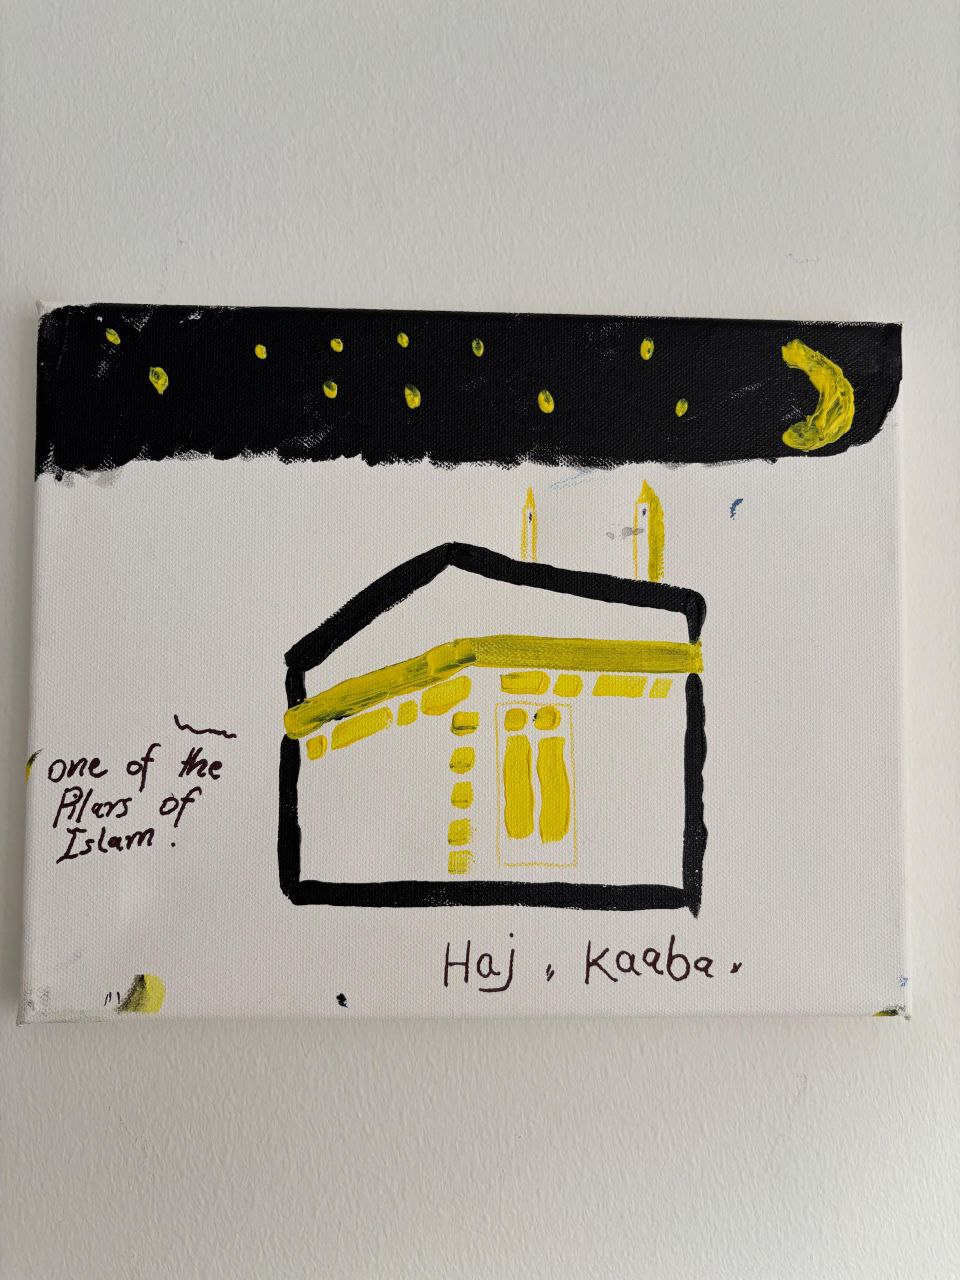 one of the
Pilars of
Islam.
Haj, Kaaba.